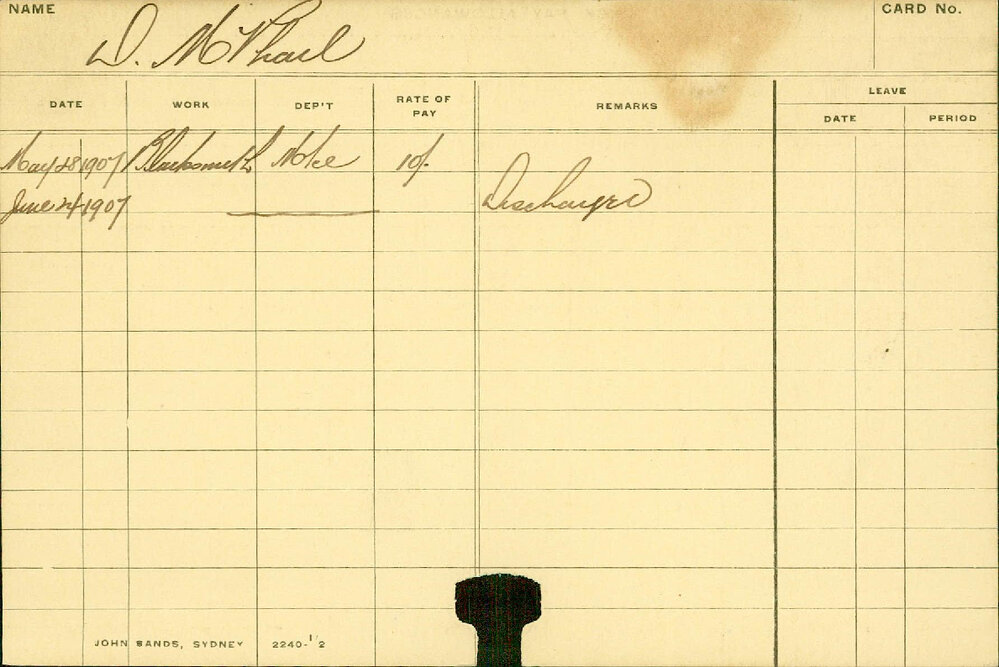 NAME CARD No.
D. McPhail
LEAVE
DATE WORK DEP'T RATE OF PAY REMARKS DATE PERIOD
May 28 1907 Blacksmith 10/-
June 24 1907 Discharged
JOHN SANDS, SYDNEY 2240-1/2